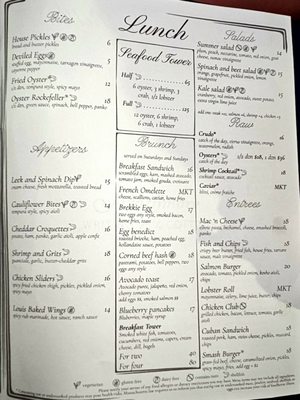 Lunch
Bites
House Pickles 6
bread and butter pickles
Deviled Eggs
stuffed egg, mayonnaise, tarragon vinaigrette,
cayenne pepper
Fried Oyster 12
1/2 dzn, tempura style, spicy mayo
Oyster Rockefeller 18
1/2 dzn, green sauce, spinach, bell pepper, panko
Appetizers
Leek and Spinach Dip 15
cream cheese, fresh mozzarella, toasted bread
Cauliflower Bites 14
tempura style, spicy aioli
Cheddar Croquettes 16
potato, ham, panko, garlic aioli, apple confit
Shrimp and Grits 18
pointails, garlic, butter-cheddar grits
Chicken Sliders 16
fried chicken thigh, pickles, pickled onion,
spicy mayo
Louis Baked Wings 14
spicy rub marinade, hot sauce, ranch sauce
Seafood Tower
Half 65
6 oyster, 3 shrimp, 3
crab, 1/2 lobster
Full 125
12 oyster, 6 shrimp, 6
crab, 1 lobster
Brunch
served on Saturdays and Sundays
Brekkie Sandwich 16
scrambled eggs, ham, mashed avocado,
tomato jam, smoked gouda, croissant
French Omelette MKT
cheese, scallions, caviar, home fries
Brekkie Egg 17
two eggs any style, smoked bacon,
home fries, toast
Egg benedict 18
toasted brioche, ham, poached egg,
hollandaise sauce, potatoes
Corned beef hash 18
pastrami, potatoes, bell peppers, two
eggs any style
Avocado toast 17
Avocado puree, jalapeño, red onion,
cherry tomatoes
add eggs $2, smoked salmon $5
Blueberry pancakes 17
blueberries, maple syrup
Breakfast Tower
Smoked white fish, tomatoes,
cucumbers, red onions, capers, cream
cheese, dill, bagels
For two 40
For four 80
Salads
Summer salad 14
plum, peach, nectarine, tomato, red onion, goat
cheese, sumac vinaigrette
Spinach and beet salad 15
orange, grapefruit, pickled onion, lemon
vinaigrette
Kale salad 15
cranberry, red onion, avocado, sweet potato,
extra virgin lime juice
Raw
Crudo*
catch of the day, citrus vinaigrette, orange,
watermelon, radish
Oysters*
catch of the day
Shrimp Cocktail*
cocktail sauce, avocado
Caviar* MKT
blini, crème fraîche
Entrees
Mac 'n Cheese 18
elbow pasta, bechamel, cheese, smashed broccoli,
panko
Fish and Chips 18
crispy beer batter, fried fish, house fries, tartare
sauce, malt vinaigrette
Salmon Burger 20
avocado, tomato, pickled onion, kosho aioli,
chips
Lobster Roll MKT
mayonnaise, celery, lime juice, butter, chips
Chicken Club 18
grilled chicken, bacon, lettuce, tomato, garlic
aioli
Cuban Sandwich 18
roasted pork, ham, swiss cheese, pickle, mustard,
chips
Smash Burger* 18
grass-fed beef, cheese, caramelized onion, pickle,
spicy mayo, fries, add egg + $2
vegetarian
gluten free
dairy free